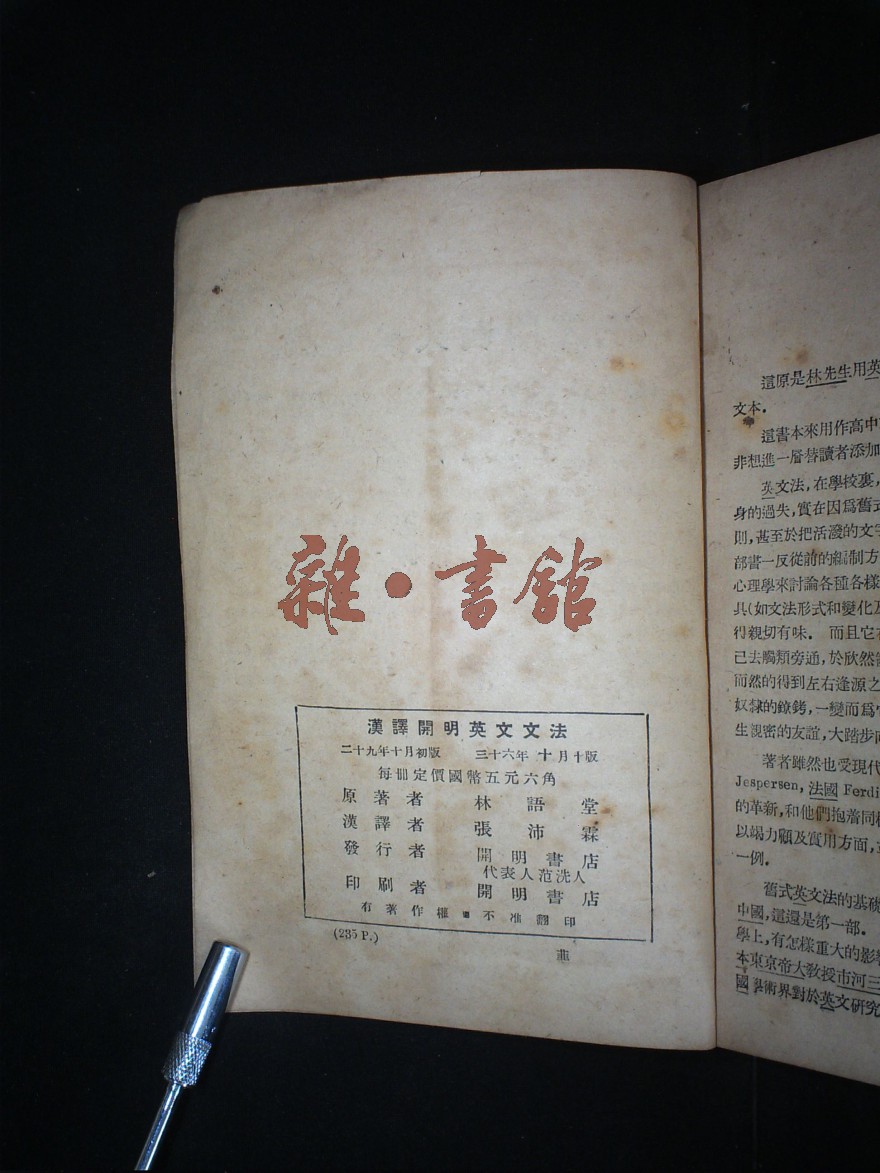 雜·書館
漢譯開明英文文法
二十九年十月初版 三十六年十月十版
每冊定價國幣五元六角
原著者 林語堂
漢譯者 張沛霖
發行者 開明書店
代表人范洗人
印刷者 開明書店
有著作權 不准翻印
(235 P.)
這原是林先生用英
文本.
這書本來用作高中
非想進一層替讀者添加
英文法,在學校裏,
身的過失,實在因爲舊式
則,甚至於把活潑的文字
部書一反從前的編制方
心理學來討論各種各樣
具(如文法形式和變化及
得親切有味. 而且它在
己去觸類旁通,於欣然
而然的得到左右逢源之
奴隸的鐐銬,一變而爲
生親密的友誼,大踏步向
著者雖然也受現代
Jespersen,法國 Ferdi
的革新,和他們抱着同樣
以竭力顧及實用方面,
一例.
舊式英文法的基礎
中國,這還是第一部.
學上,有怎樣重大的影響
本東京帝大教授市河三
國學術界對於英文研究